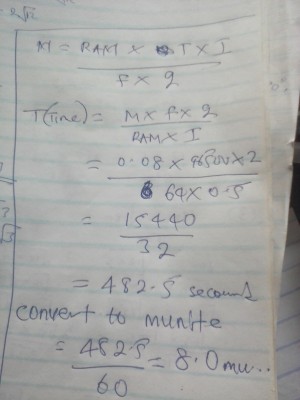 M = RAM X T X I
F X 2
T(Time) = M X F X 2
RAM X I
= 0.08 X 96500 X 2
64 X 0.5
= 15440
32
= 482.5 second
convert to munite
= 482.5 = 8.0 mu..
60